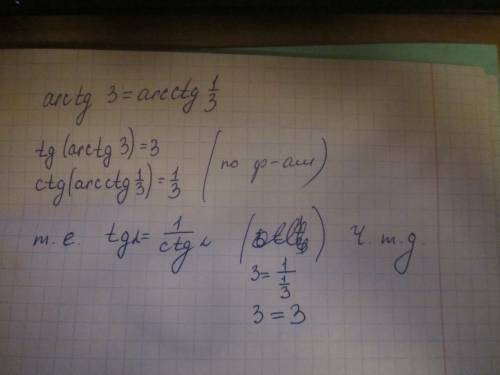 arctg 3 = arcctg 1/3
tg (arctg 3) = 3
ctg (arcctg 1/3) = 1/3 (по ф-ам)
т.е. tg α = 1/ctg α ( ) ч.т.д
3 = 1/(1/3)
3 = 3